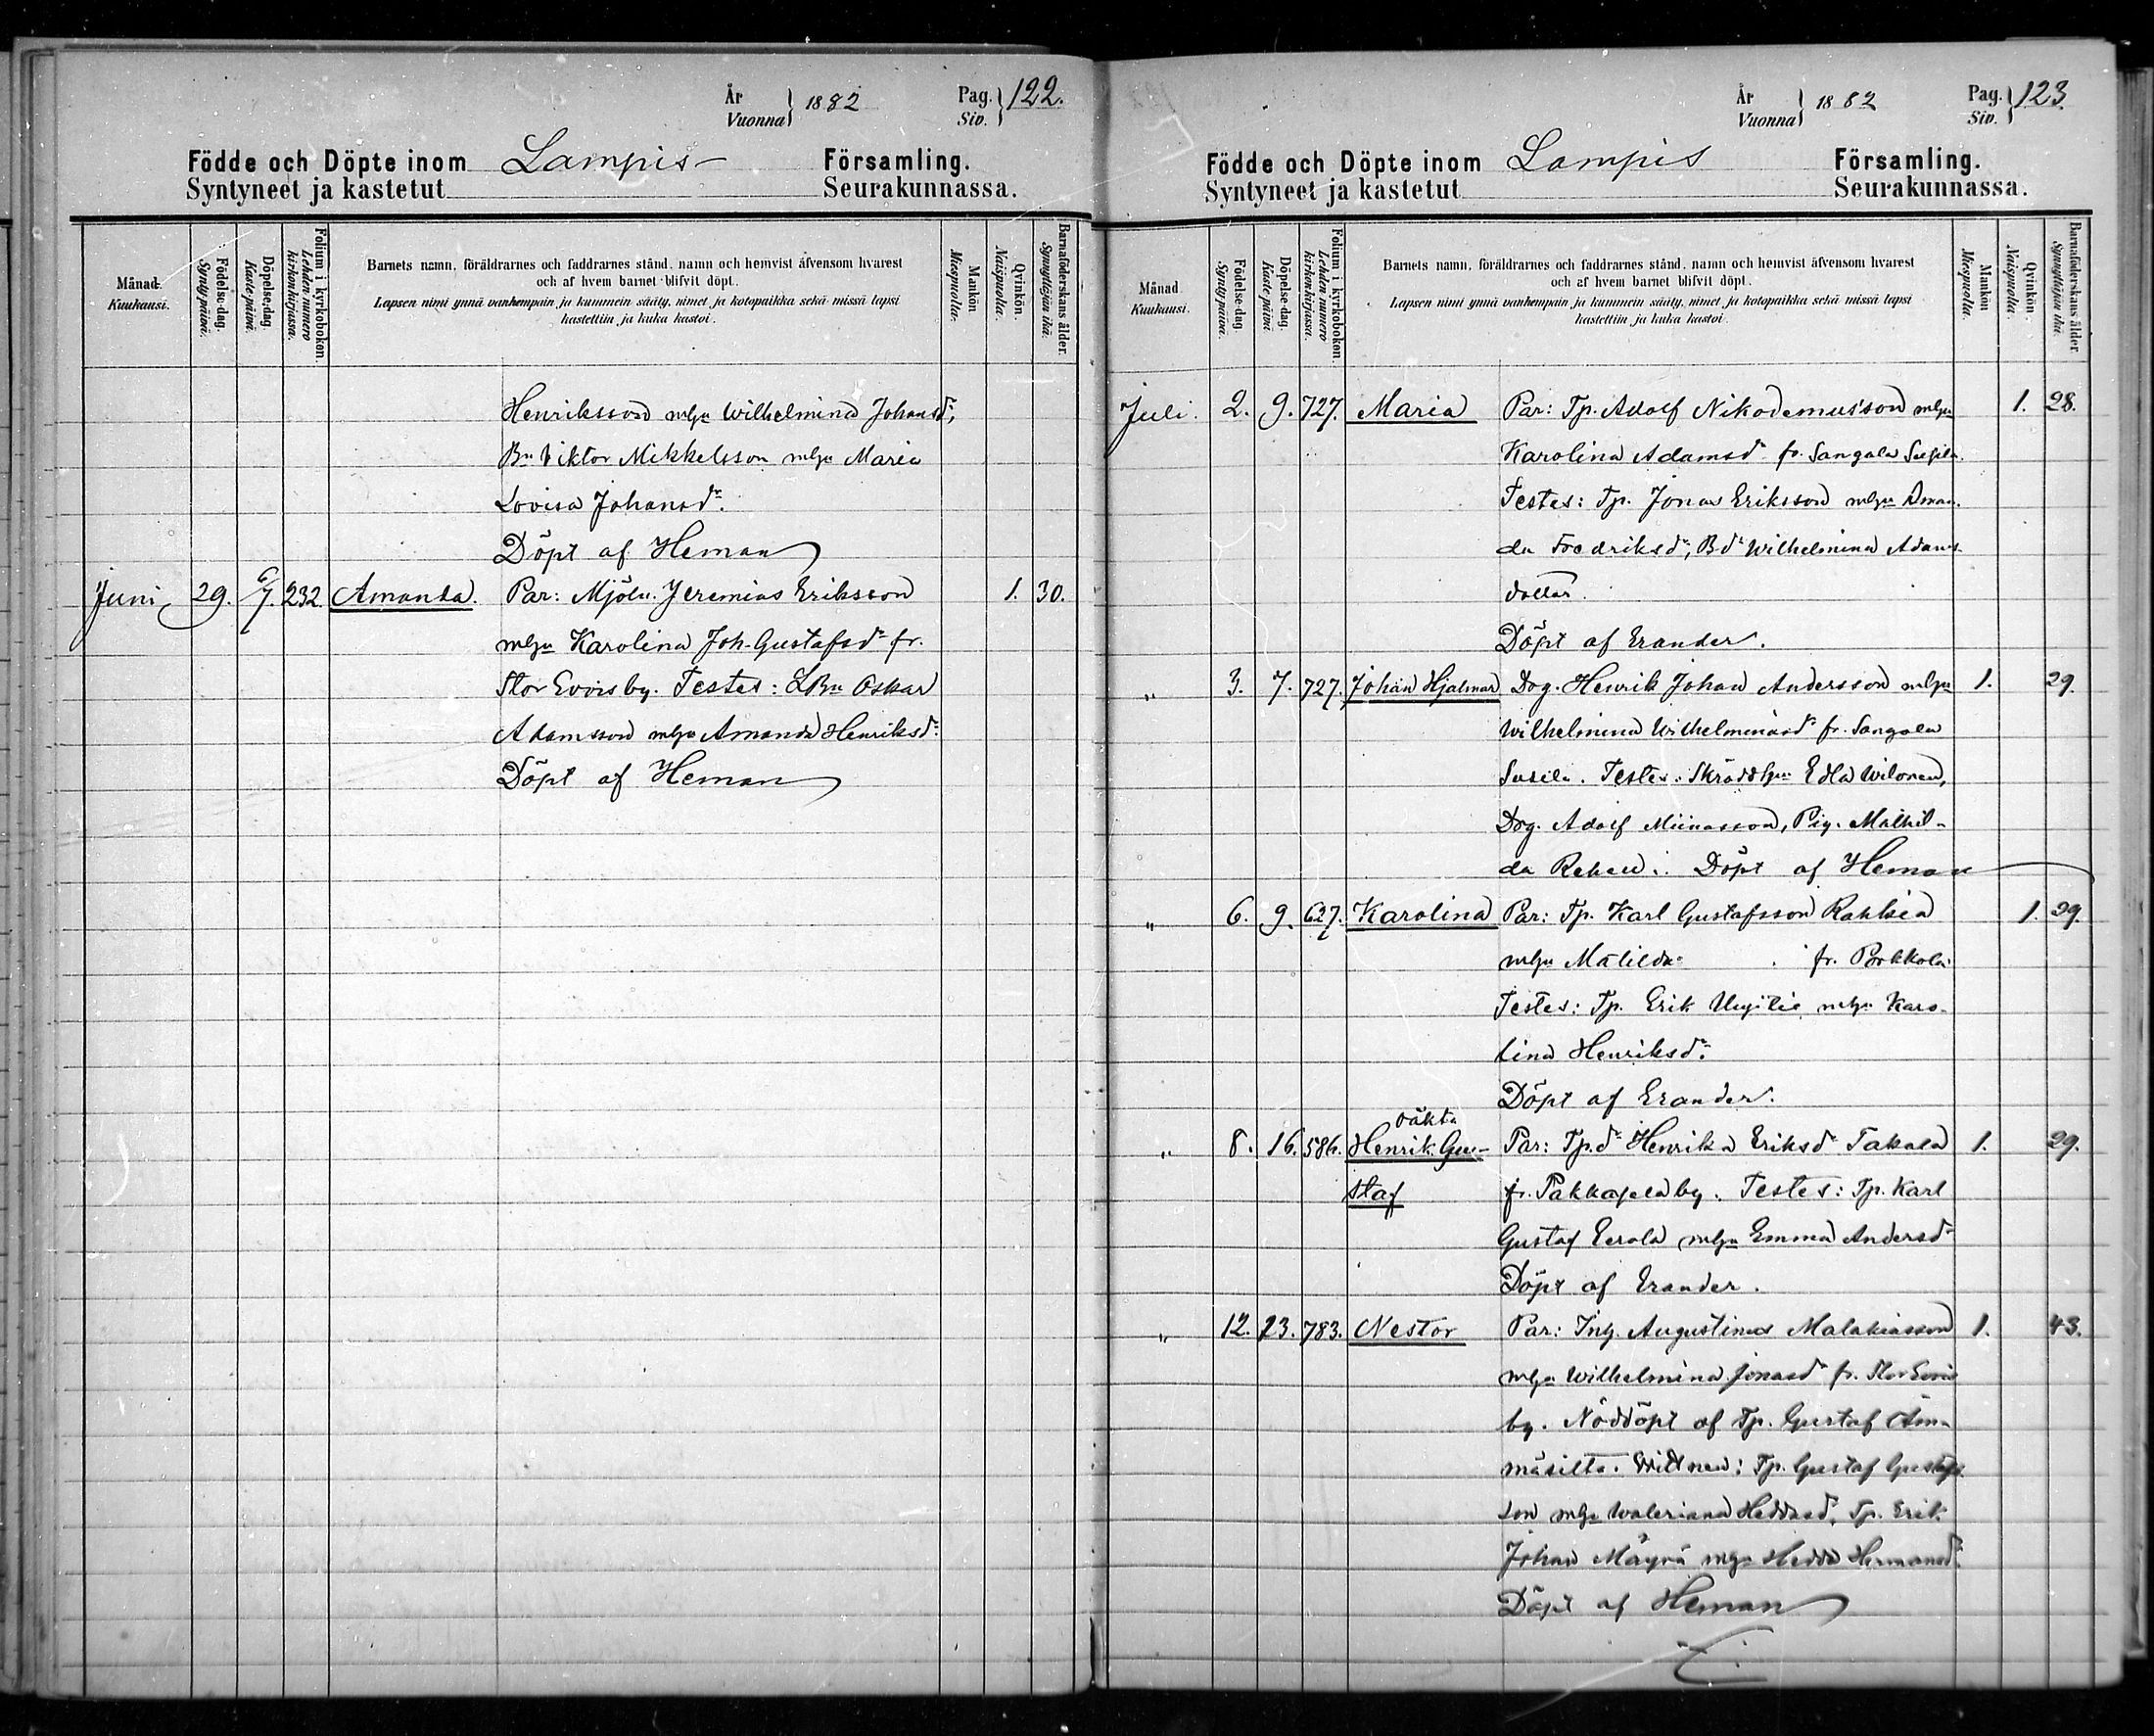 År
Vuonna } 1882
Pag.
Siv. } 122.
Födde och Döpte inom Lampis Församling.
Syntyneet ja kastetut Seurakunnassa.
Månad.
Kuukausi.
Födelse-dag.
Synty päivä.
Döpelse-dag.
Kaste päivä.
Folium i kyrkoboken.
Lehden numero kirkonkirjassa.
Barnets namn, föräldrarnes och faddrarnes stånd, namn och hemvist äfvensom hvarest
och af hvem barnet blifvit döpt.
Lapsen nimi ynnä vanhempain ja kummein sääty, nimet ja kotopaikka sekä missä lapsi
kastettiin ja kuka kastoi.
Mankön
Miespuolia.
Qvinkön.
Naispuolia.
Barnaföderskans ålder.
Synnyttäjän ikä.
Henriksson m hu Wilhelmina Johansdr,
Bn Viktor Mikkelsson m hu Maria
Lovisa Johansdr.
Döpt af Heman
Juni 29. 6/7. 232. Amanda. Par: Mjöln. Jeremias Eriksson 1. 30.
m hu Karolina Joh. Gustafsdr fr.
Stor Evois by. Testes: LBn Oskar
Adamsson m hu Amanda Henriksdr.
Döpt af Heman
År
Vuonna } 1882
Pag.
Siv. } 123.
Födde och Döpte inom Lampis Församling.
Syntyneet ja kastetut Seurakunnassa.
Månad
Kuukausi.
Födelse-dag
Synty päivä.
Döpelse-dag.
Kaste päivä
Folium i kyrkoboken.
Lehden numero kirkonkirjassa.
Barnets namn, föräldrarnes och faddrarnes stånd, namn och hemvist äfvensom hvarest
och af hvem barnet blifvit döpt.
Lapsen nimi ynnä vanhempain ja kummein sääty, nimet ja kotopaikka sekä missä lapsi
kastettiin ja kuka kastoi.
Mankön
Miespuolia.
Qvinkön.
Naispuolia.
Barnaföderskans ålder
Synnyttäjän ikä.
Juli. 2. 9. 727. Maria Par: Tp. Adolf Nikodemusson m hu 1. 28.
Karolina Adamsdr fr. Sangala
Testes: Tp. Jonas Eriksson m hu Aman-
da Fredriksdr, Bdr Wilhelmina Adams-
dotter.
Döpt af Erander.
" 3. 7. 727. Johan Hjalmar Dog. Henrik Johan Andersson m hu 1. 29.
Wilhelmina Wilhelminasdr fr. Sangala
Testes: Skrädd hu Edla Wilonen,
Dog. Adolf Miinasson, Pig. Mathil-
da Döpt af Heman
" 6. 9. 627. Karolina Par: Tp. Karl Gustafsson 1. 29.
m hu Matilda fr. Porkkola
Testes: Tp. Erik m hu Karo-
lina Henriksdr.
Döpt af Erander.
oäkta
" 8. 16. 586. Henrik Gu- Par: Tp.dr Henrika Eriksdr Takala 1. 29.
staf fr. Pakkaselaby. Testes: Tp. Karl
Gustaf Eerola m hu Emma Andersdr
Döpt af Erander.
" 12. 23. 783. Nestor Par: Inh. Augustinus Malakiasson 1. 43.
m hu Wilhelmina Jonasdr fr. Stor Evois
by. Nöddöpt af Tp. Gustaf Äm-
mäsilta. Wittnen: Tp. Gustaf Gustafs-
son m hu Waleriana Heddasdr, Tp. Erik
Johan Mäyrä m hu Hedda Hermansdr.
Döpt af Heman